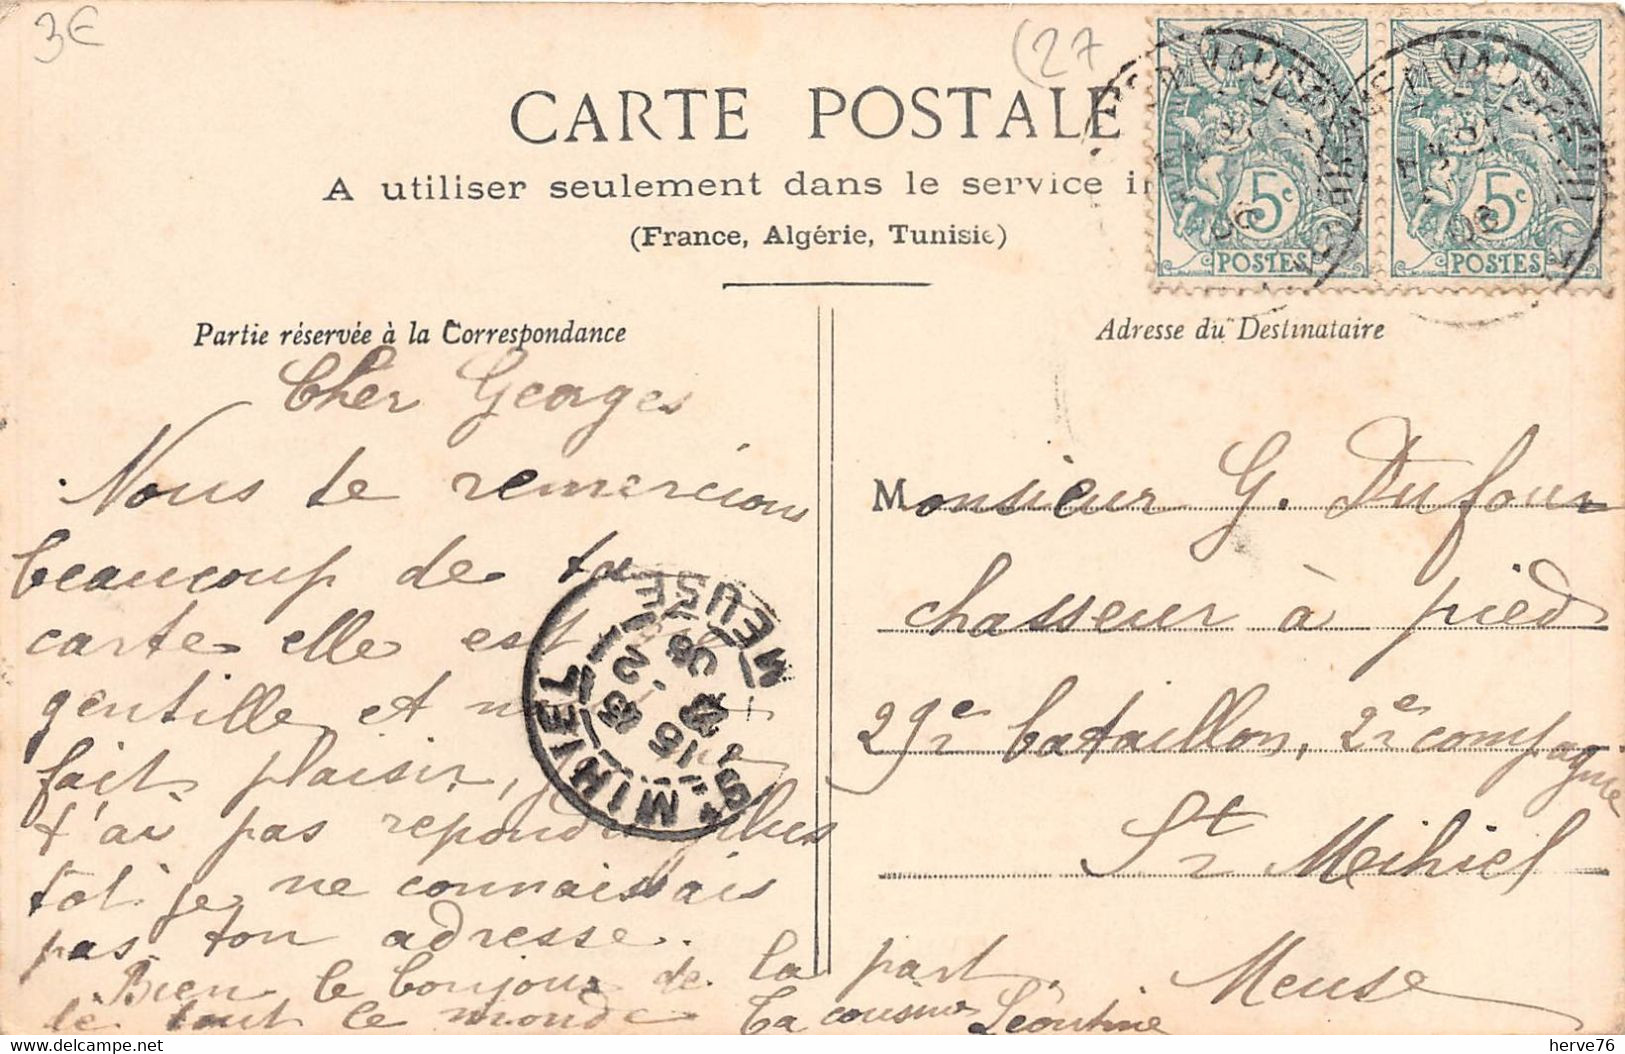 3€
(27
CARTE POSTALE
A utiliser seulement dans le service
(France, Algérie, Tunisie)
5c
POSTES
5c
POSTES
Partie réservée à la Correspondance
Adresse du Destinataire
Cher Georges
Nous te remercions
beaucoup de ta
carte elle est
gentille et
fait plaisir,
t'ai pas repondu plus
tôt je ne connaissais
pas ton adresse.
Bien le bonjour de la part
le tout le monde
Ta cousine Léontine
Monsieur G. Dufour
chasseur à pied
29e bataillon, 2e compagnie
St Mihiel
Meuse
ST MIHIEL
MEUSE
delcampe.net
herve76